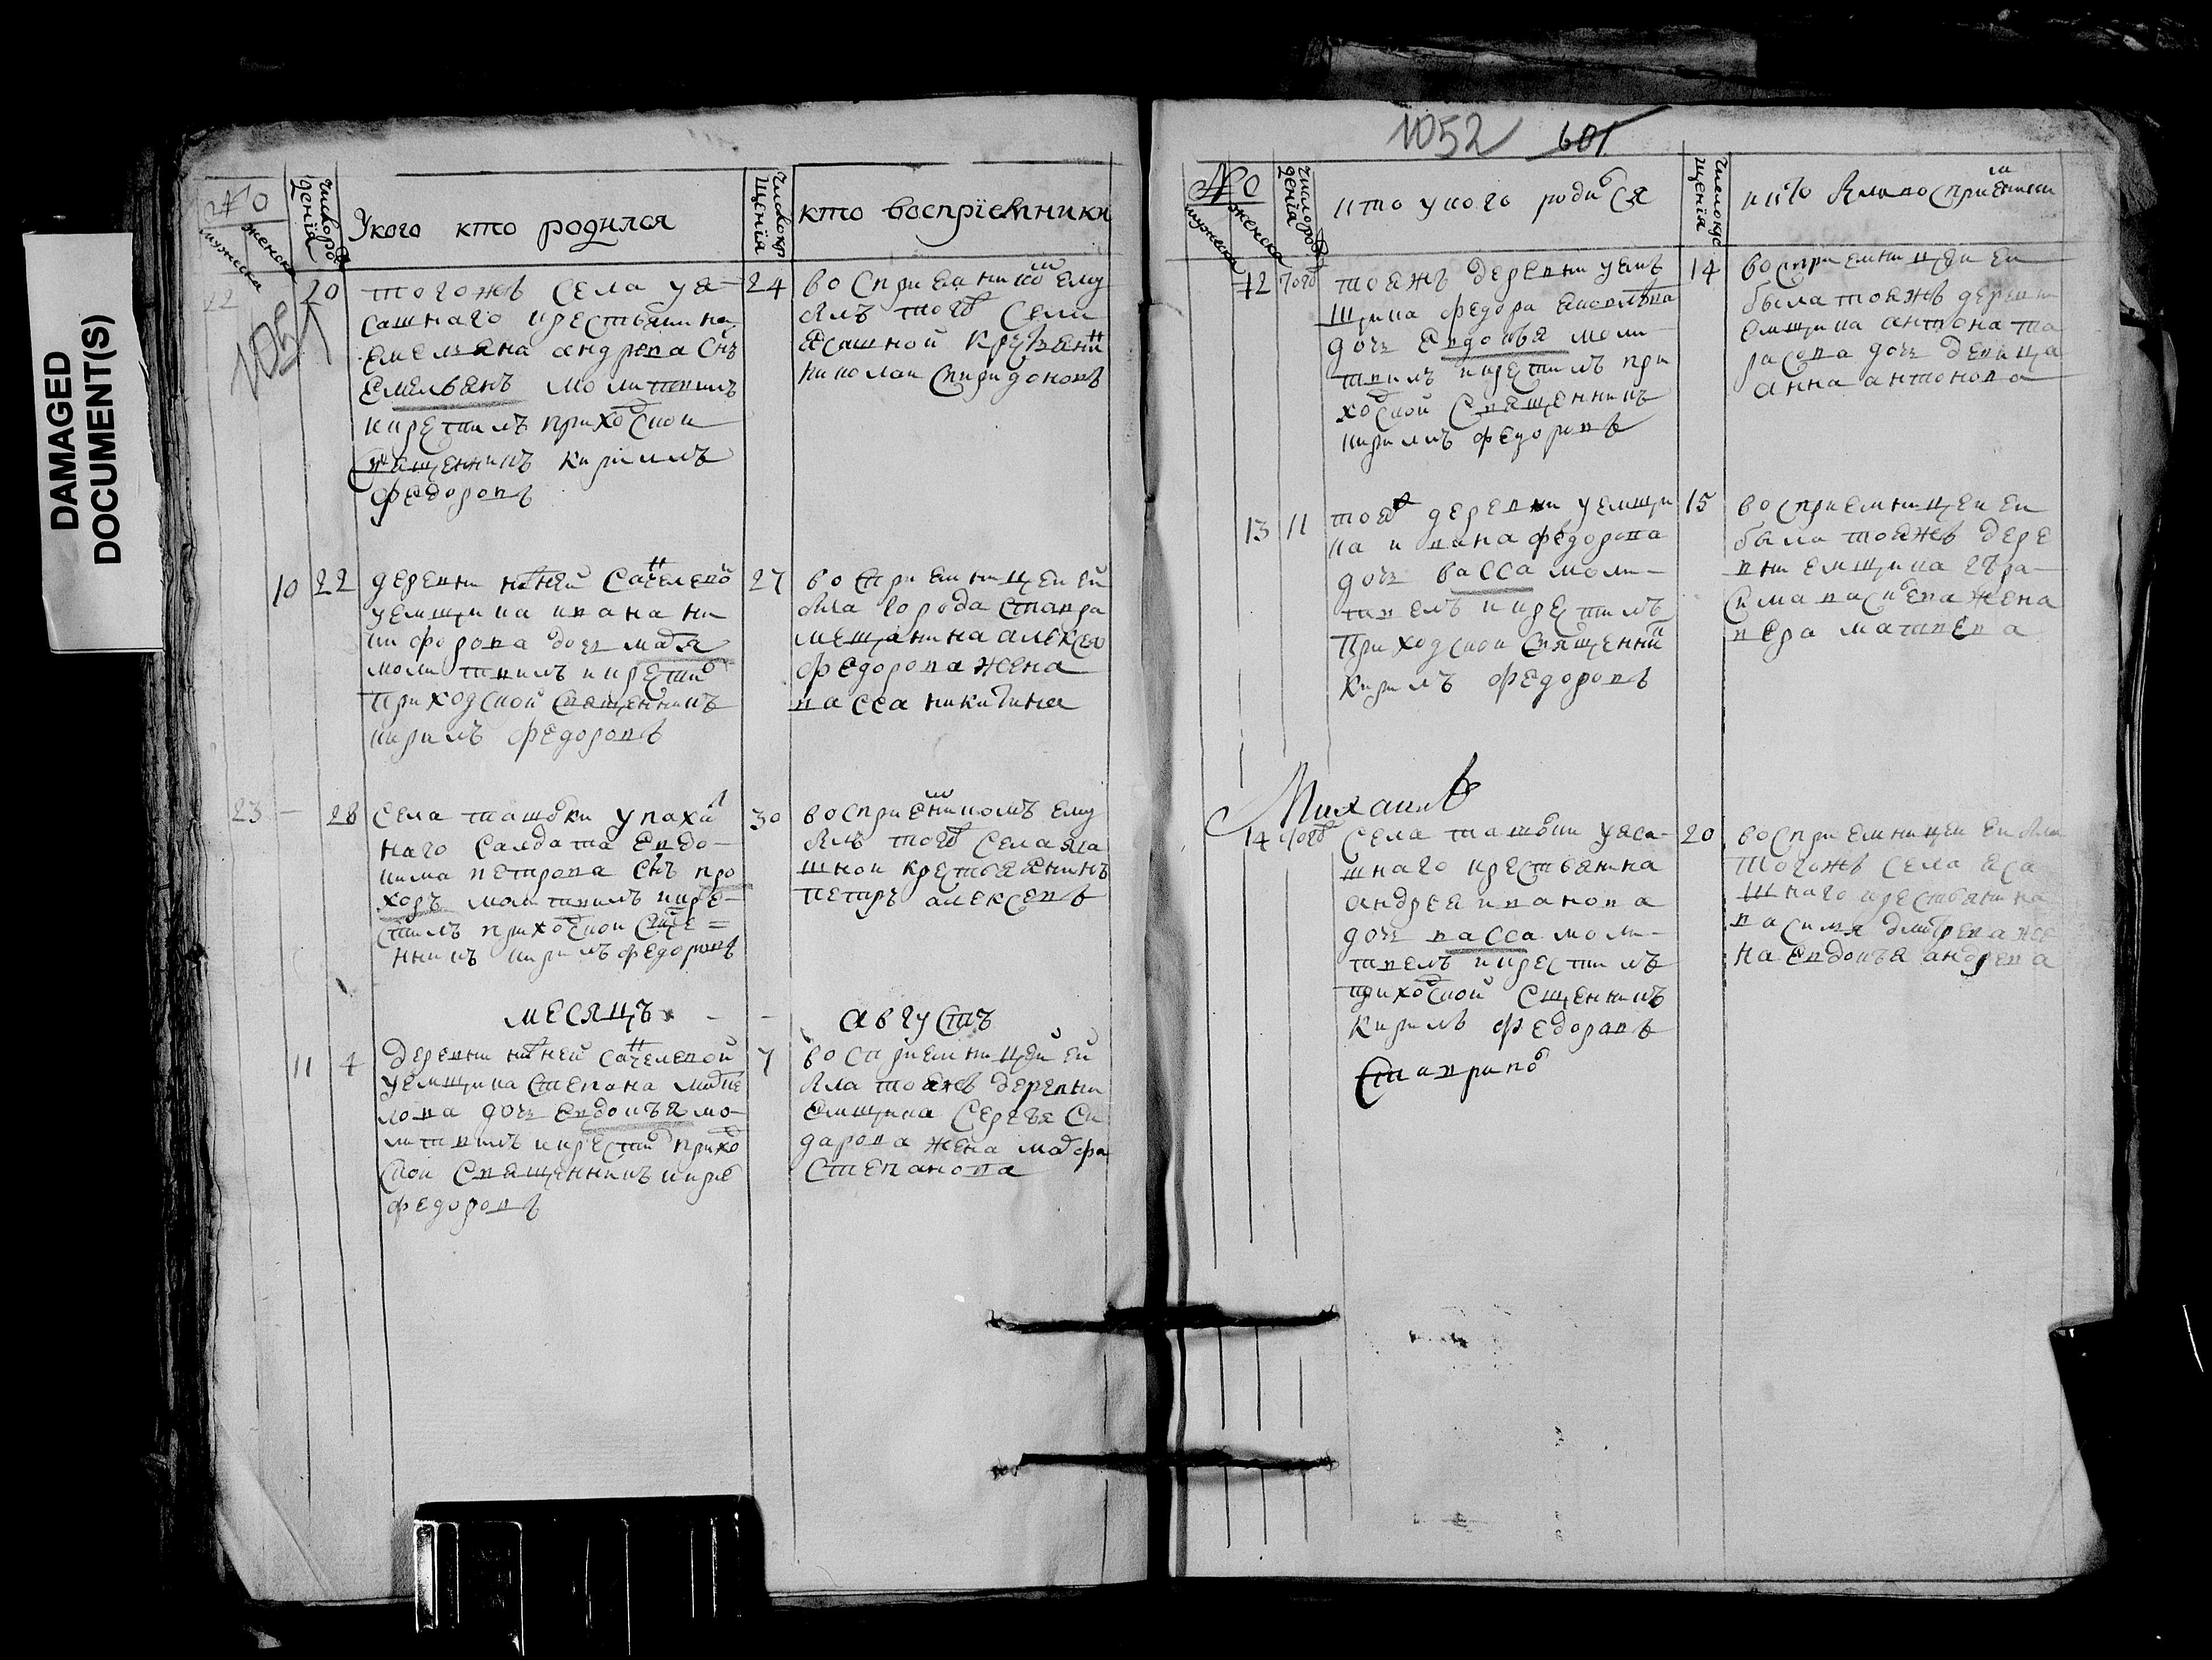 DAMAGED
DOCUMENT(S)
1051
№
мужеска
женска
число рождения
У кого кто родился
число крещения
кто восприемники
22
20
тогожъ села уя-
сашнаго крестьянина
емельяна андреева снъ
емельянъ молитвилъ
и крестилъ приходской
священникъ кирилъ
федоровъ
24
восприемником ему
былъ тогож села
ясашной крестьянин
николаи спиридоновъ
10
22
деревни нижней сачелевой
уемщика ивана ни
кифорова дочь
молитвилъ и крестил
приходской священникъ
кирилъ федоровъ
27
восприемницей ей
была города ставра
мещанина алексея
федорова жена
васса никитина
23
28
села ташолки у пахат
наго салдата евдо-
кима петрова снъ про
хоръ молитвилъ и кре-
стилъ приходской свще=
нникъ кирилъ федоровъ
30
восприемникомъ ему
былъ тогож села яса
шной крестьянинъ
петръ алексеевъ
месяцъ
августъ
11
4
деревни нижней сачелевой
уемщика степана
лова дочь евдокья мо-
литвилъ и крестил приход
ской священникъ кирил
федоровъ
7
восприемницей ей
была тояжъ деревни
емщика сергея си
дарова жена мавфа
степанова
1052 601
№
мужеска
женска
число рождения
кто у кого родился
число крещения
и кто были восприемники
12
тояжъ деревни уем
щика федора
дочь евдокья моли-
твилъ и крестилъ при
ходской священникъ
кирилъ федоровъ
14
восприемницей ей
была тояжъ деревни
емщика антона та
расова дочь девица
анна антонова
13
11
тояж деревни уемщи
ка ивана федорова
дочь васса моли-
твилъ и крестилъ
приходской священник
кирилъ федоровъ
15
восприемницей ей
была тояжъ дере
вни емщика гера-
сима жена
вера матвева
Михаилъ
14
села ташолки уяса-
шнаго крестьянина
андрея иванова
дочь васса моли-
твилъ и крестилъ
приходской сщенникъ
кирилъ федоровъ
20
восприемницей ей была
тогожъ села яса
шнаго крестьянина
василя дмитрева же
на евдокъя андрева